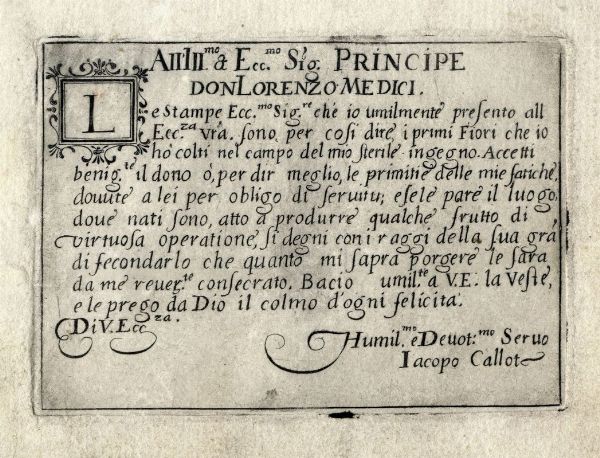 All Ill.mo & Ecc.mo Sig. PRINCIPE
DON LORENZO MEDICI.
Le Stampe Ecc.mo Sig.re che io umilmente presento all
Ecc.za vra. sono, per cosi dire, i primi Fiori che io
hò colti nel campo del mio sterile ingegno. Accetti
benig.te il dono ò, per dir meglio, le primitie delle mie fatiche,
douute a lei per obligo di seruitu; e se le pare il luogo,
doue nati sono, atto a produrre qualche frutto di
virtuosa operatione, si degni con i raggi della sua grã
di fecondarlo che quanto mi saprà porgere le sarà
da me reuer.te consecrato. Bacio umil.te a V.E. la Veste,
e le prego da Dio il colmo d'ogni felicità.
Di V. Ecc.za.
Humil.mo e Deuot.mo Seruo
Iacopo Callot